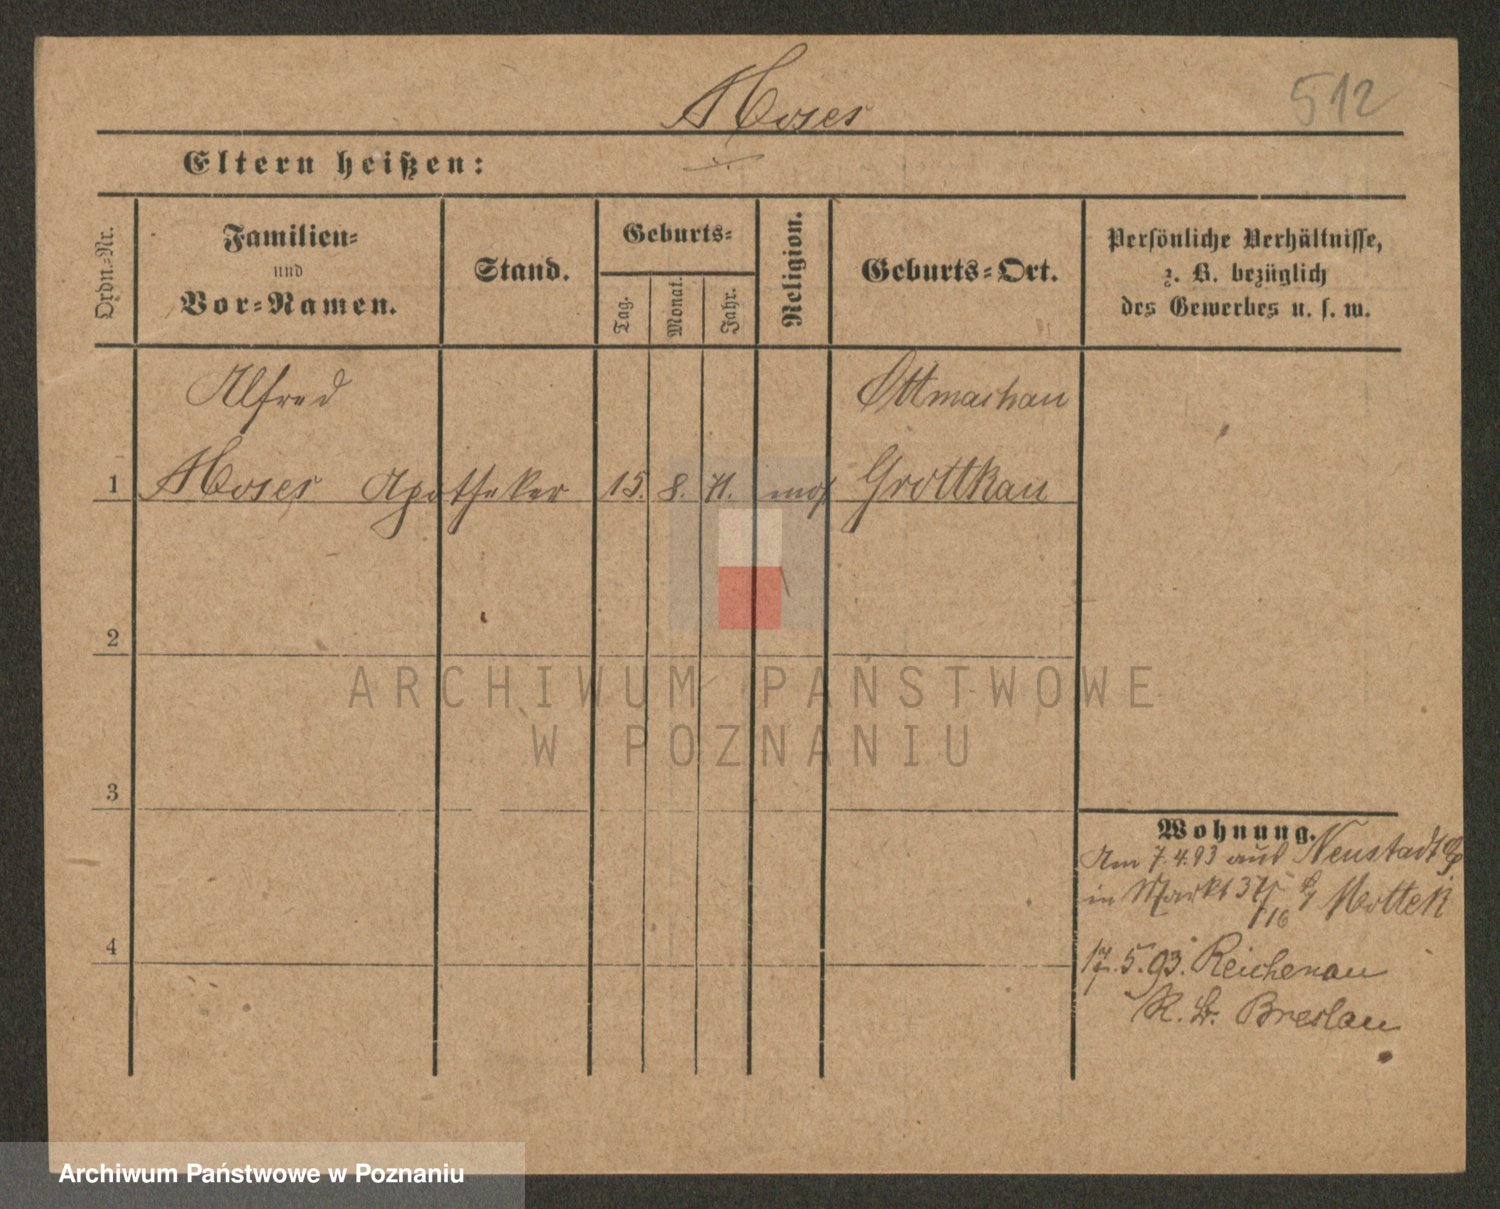 Moses
512
Eltern heißen:
Ordn.-Nr.
Familien-
und
Vor-Namen.
Stand.
Geburts-
Tag.
Monat.
Jahr.
Religion.
Geburts-Ort.
Persönliche Verhältnisse,
z. B. bezüglich
des Gewerbes u. s. w.
Alfred
Ottmachau
1 Moses Apotheker 15. 8. 71. mos Grottkau
2
3
4
ARCHIWUM PAŃSTWOWE
W POZNANIU
Wohnung.
Am 7.4.93 aus Neustadt
in Markt 37 Mottek
17.5.93. Reichenau
K. Br. Breslau
Archiwum Państwowe w Poznaniu